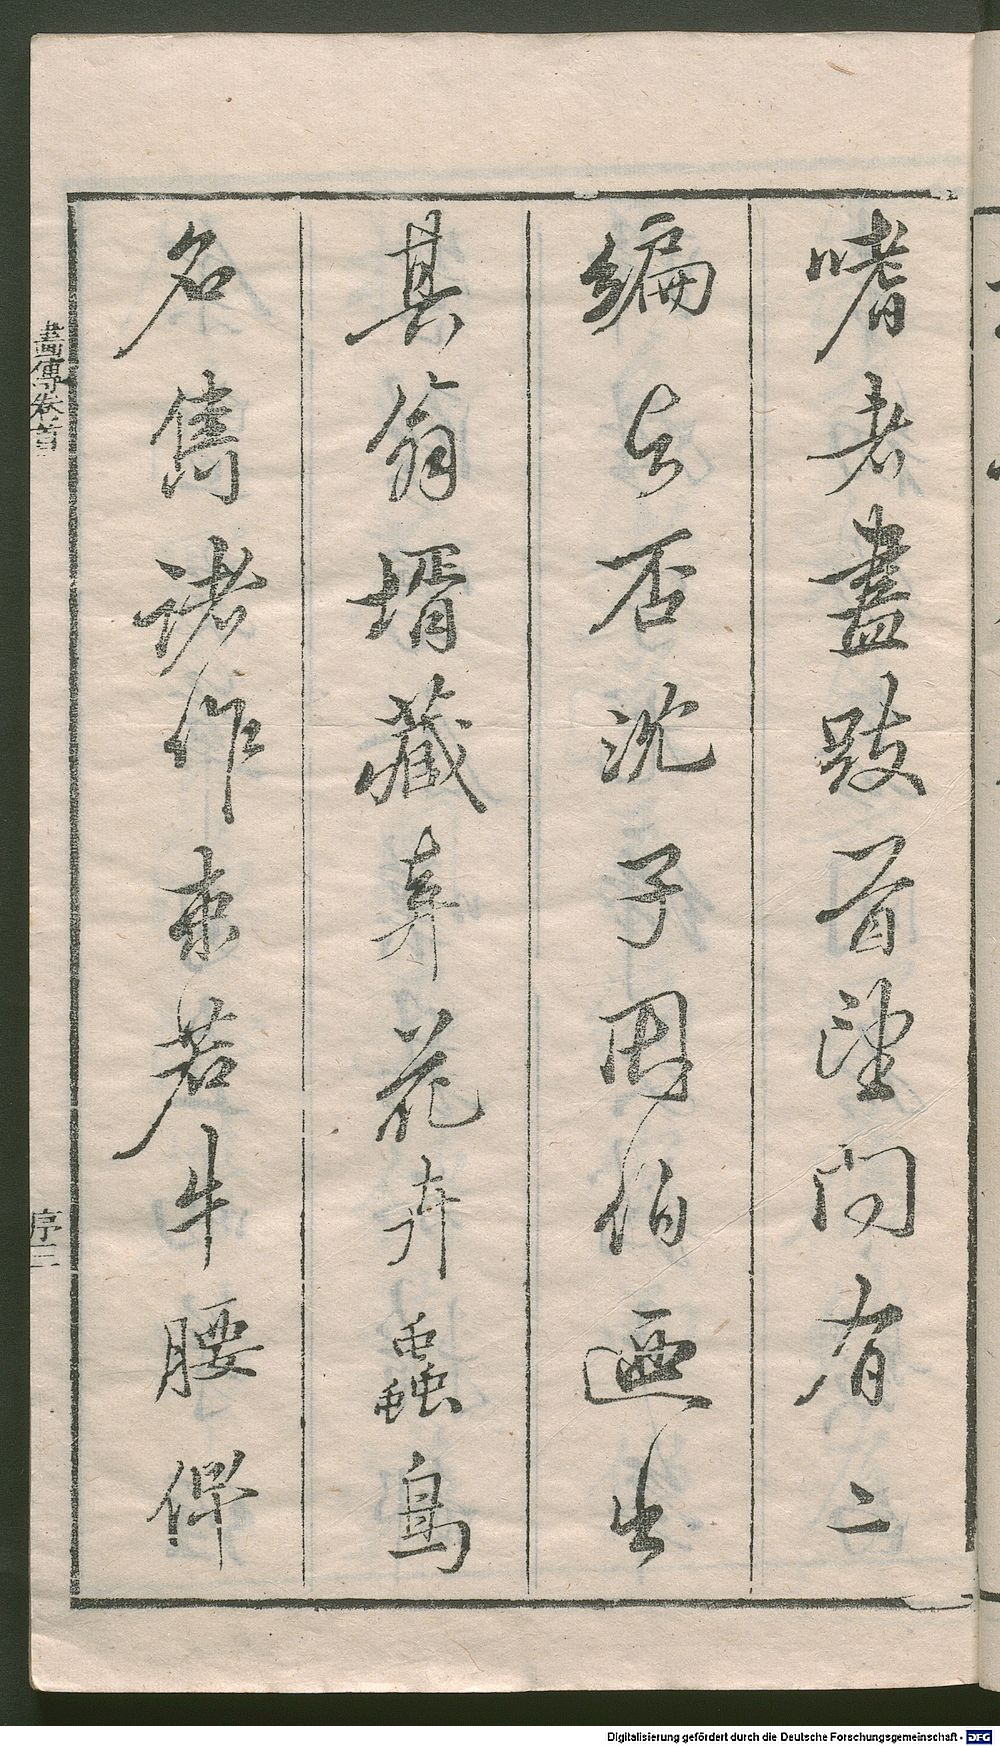 嗜者盡跂首望問有二
編與否沈子因伯遂出
其翁壻藏弆花卉蟲鳥
名雋諸作束若牛腰俾
畫傳卷首
序三
Digitalisierung gefördert durch die Deutsche Forschungsgemeinschaft - DFG